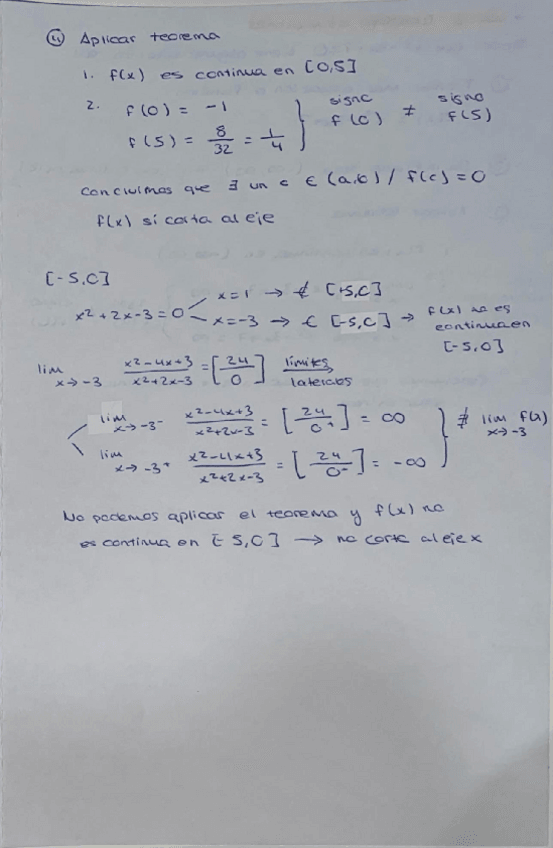 ④ Aplicar teorema
1. f(x) es continua en [0,5]
2. f(0) = -1
f(5) = 8/32 = 1/4 } signo f(0) ≠ signo f(5)
Concluimos que ∃ un c ∈ (a,b) / f(c) = 0
f(x) si corta al eje
[-5,0]
x² + 2x - 3 = 0
x = 1 → ∉ [-5,0]
x = -3 → ∈ [-5,0] → f(x) no es continua en [-5,0]
lim x→-3 x²-4x+3 / x²+2x-3 = [24/0] límites laterales
lim x→-3⁻ x²-4x+3 / x²+2x-3 = [24/0⁺] = ∞
lim x→-3⁺ x²-4x+3 / x²+2x-3 = [24/0⁻] = -∞ } ∄ lim x→-3 f(x)
No podemos aplicar el teorema y f(x) no
es continua en [-5,0] → no corta al eje x